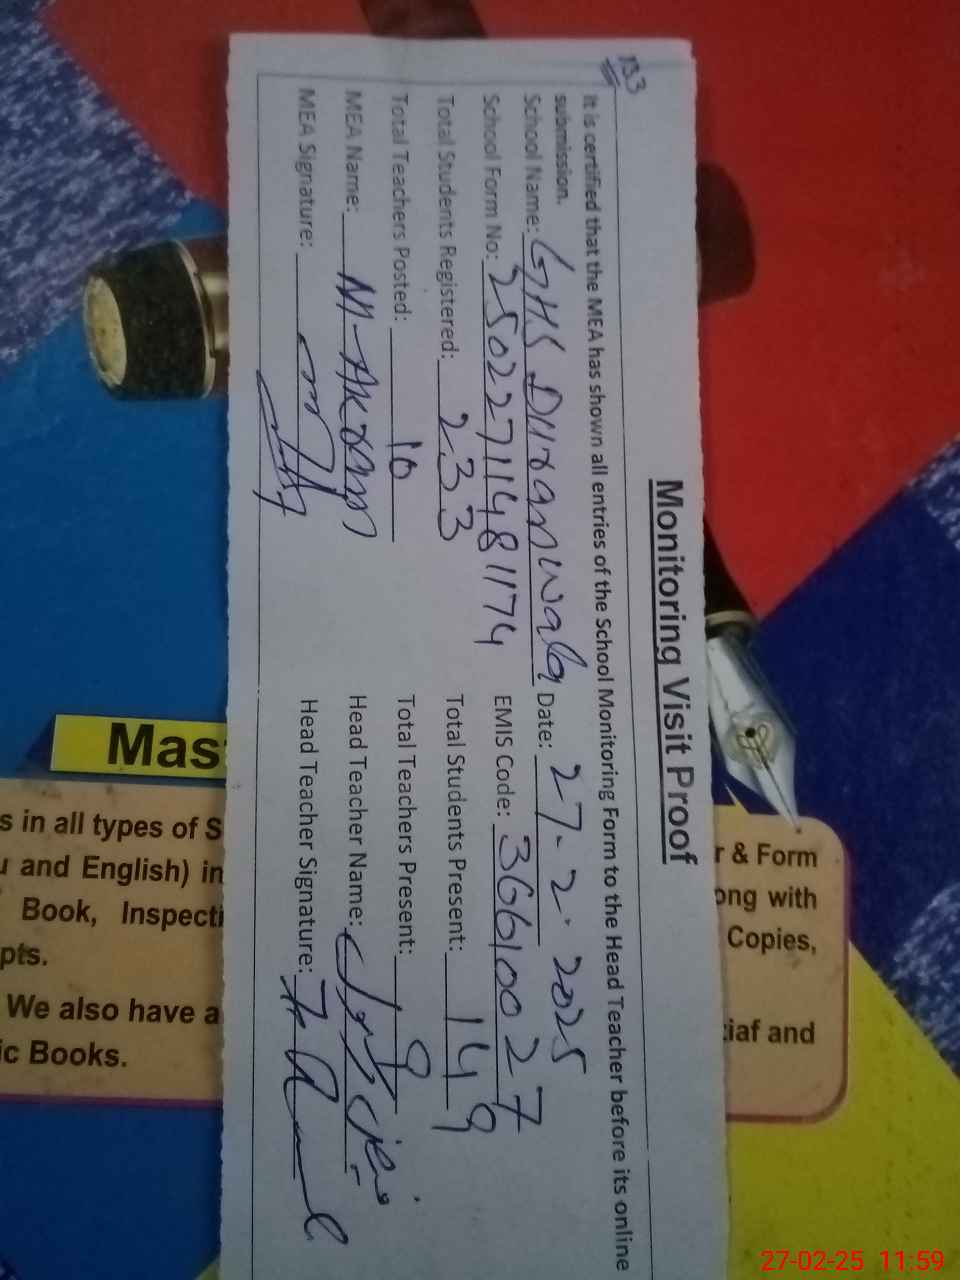 133
Monitoring Visit Proof
It is certified that the MEA has shown all entries of the School Monitoring Form to the Head Teacher before its online
submission.
School Name: GHS Duranwala Date: 27-2-2025
School Form No: 25022711481174 EMIS Code: 36610027
Total Students Registered: 233 Total Students Present: 149
Total Teachers Posted: 10 Total Teachers Present: 9
MEA Name: M-Akram Head Teacher Name:
MEA Signature: Head Teacher Signature:
Mas
s in all types of S
u and English) in
Book, Inspecti
pts.
We also have a
ic Books.
r & Form
ong with
Copies,
iaf and
27-02-25 11:59